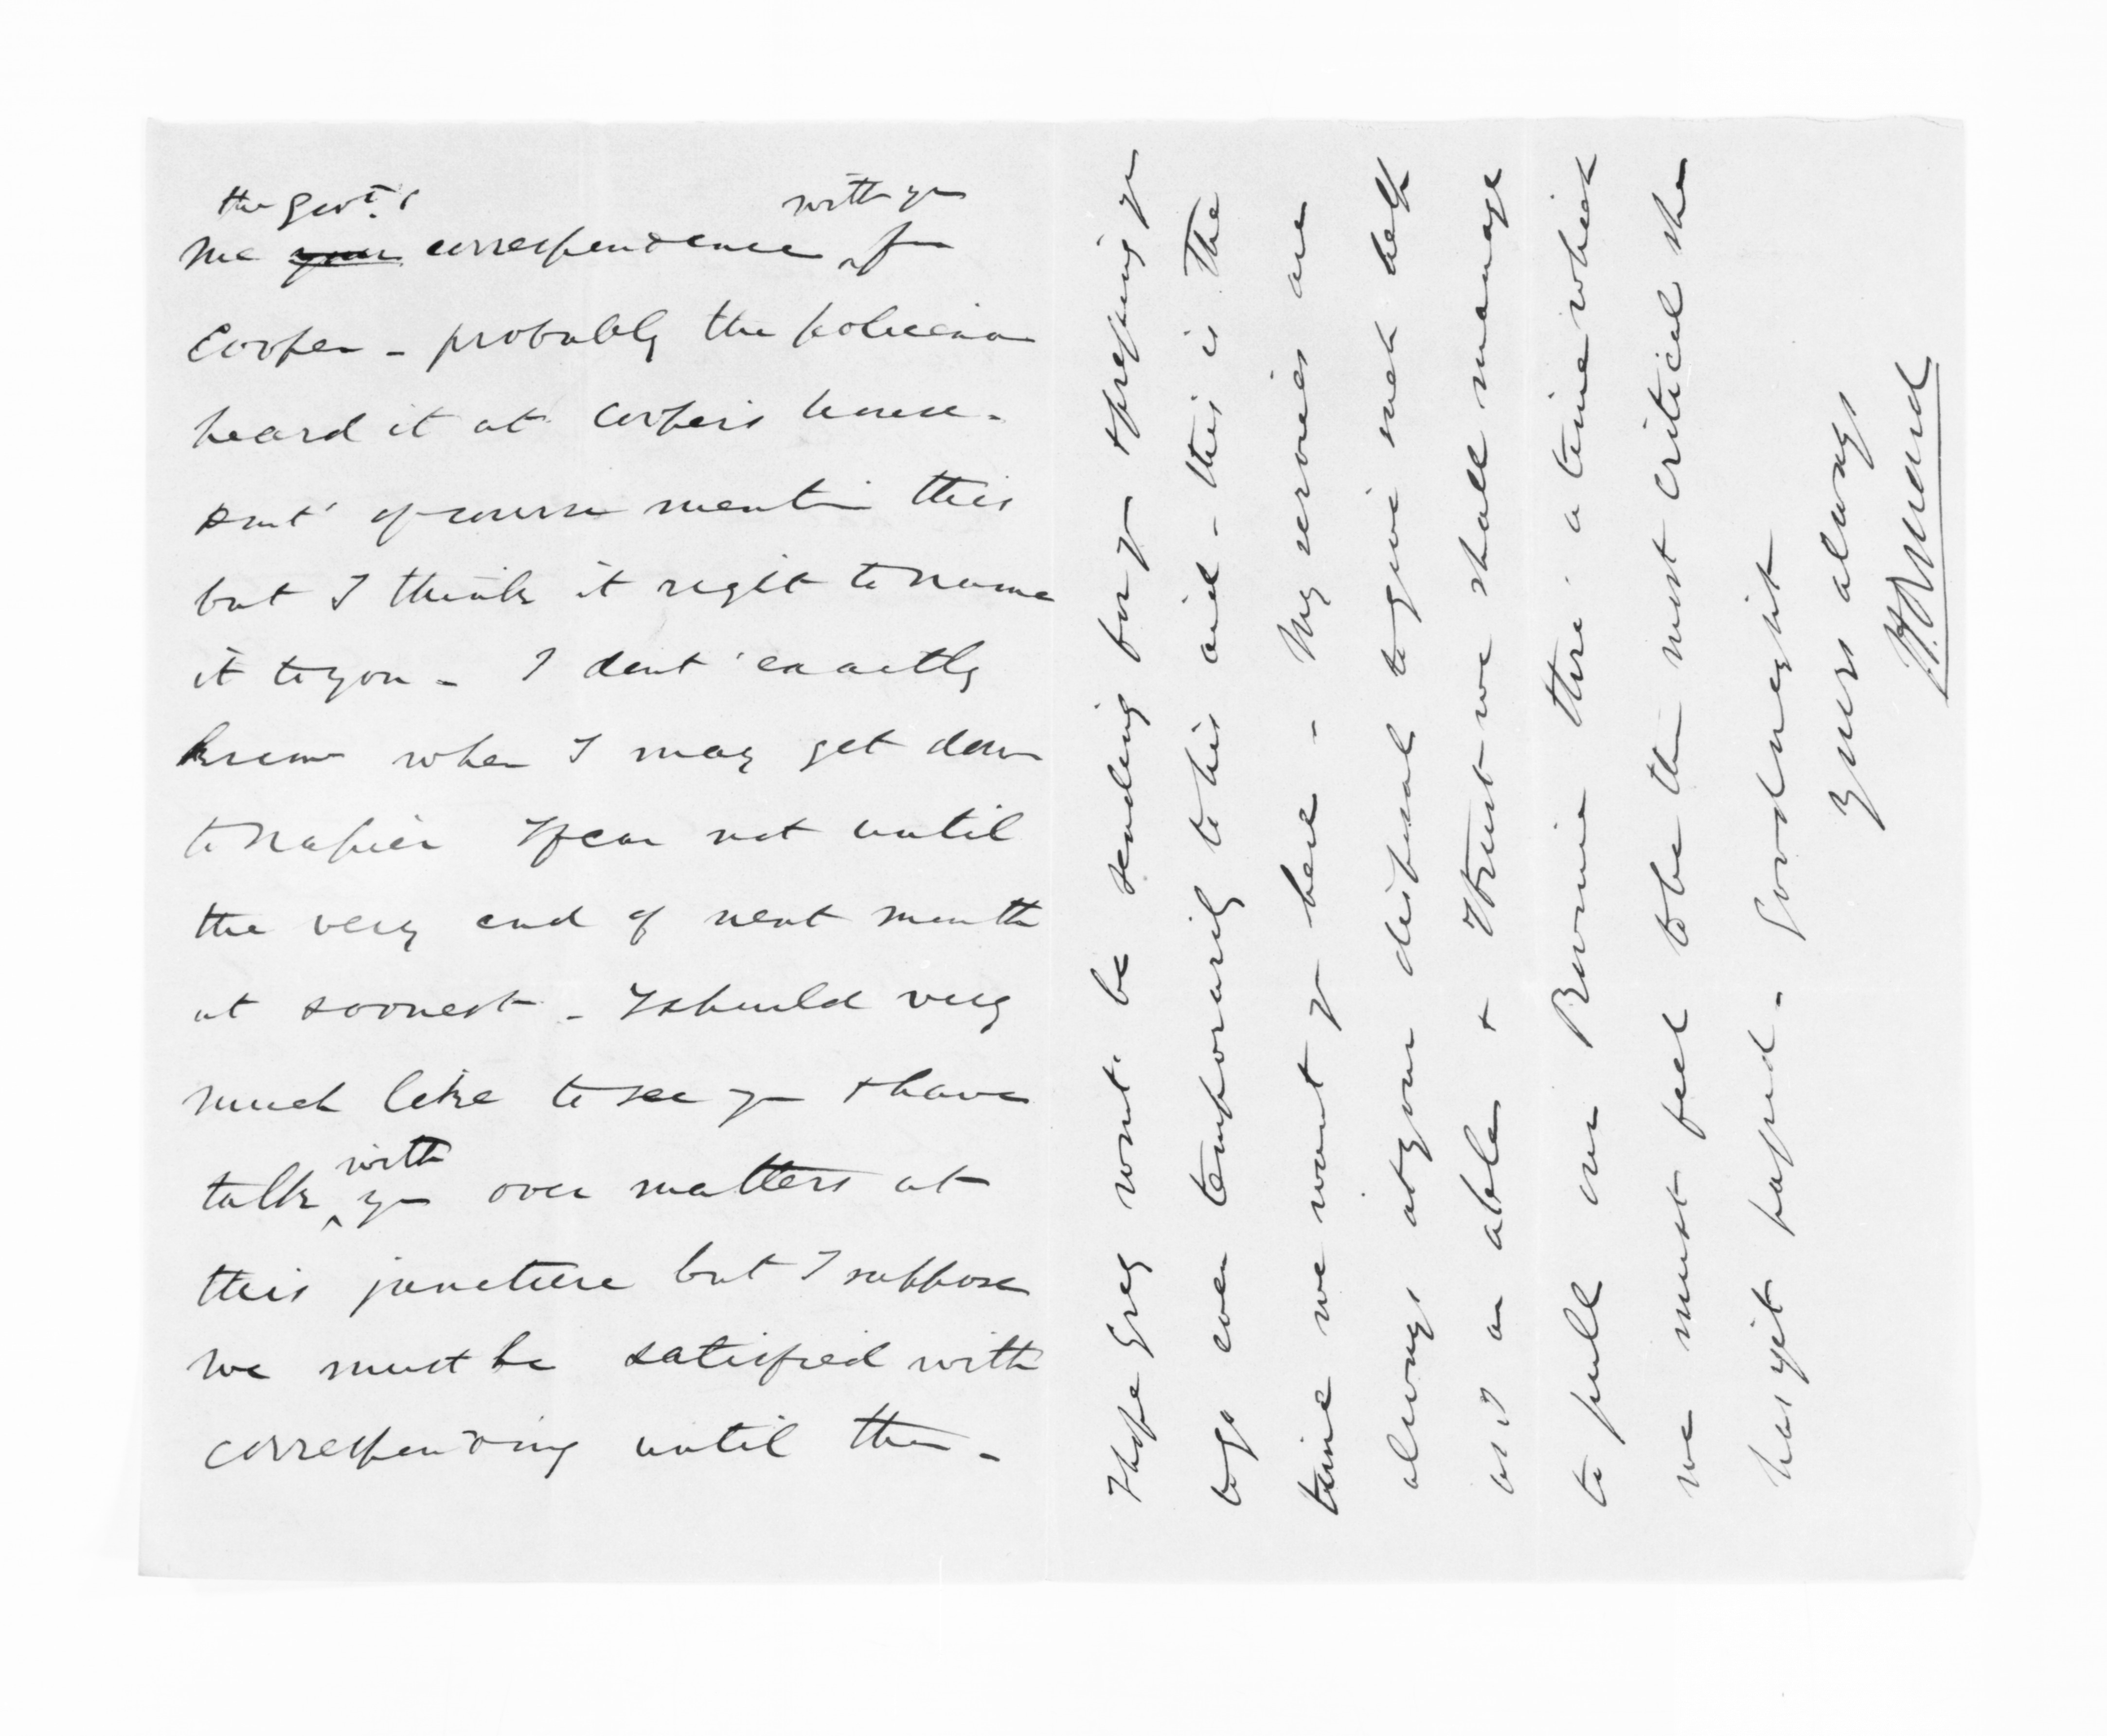 the Govt.'s with you
me your correspondence for
Cooper - probably the policeman
heard it at Cooper's house -
Dont' of course mention this
but I think it right to name
it to you - I dont' exactly
know when I may get down
to Napier I fear not until
the very end of next month
at soonest - I should very
much like to see you & have
with
talk you over matters at
this juncture but I suppose
we must be satisfied with
corresponding until then -
I hope Grey wont. be sending for you & pressing you
to go even temporarily to his aid - this is the
time we want you here - My services are
always at your disposal to give such help
as I am able & I trust we shall manage
to pull our Province thro' a time which
we must feel to be the most critical she
has yet passed - Goodnight
Yours always
H. R. Russell